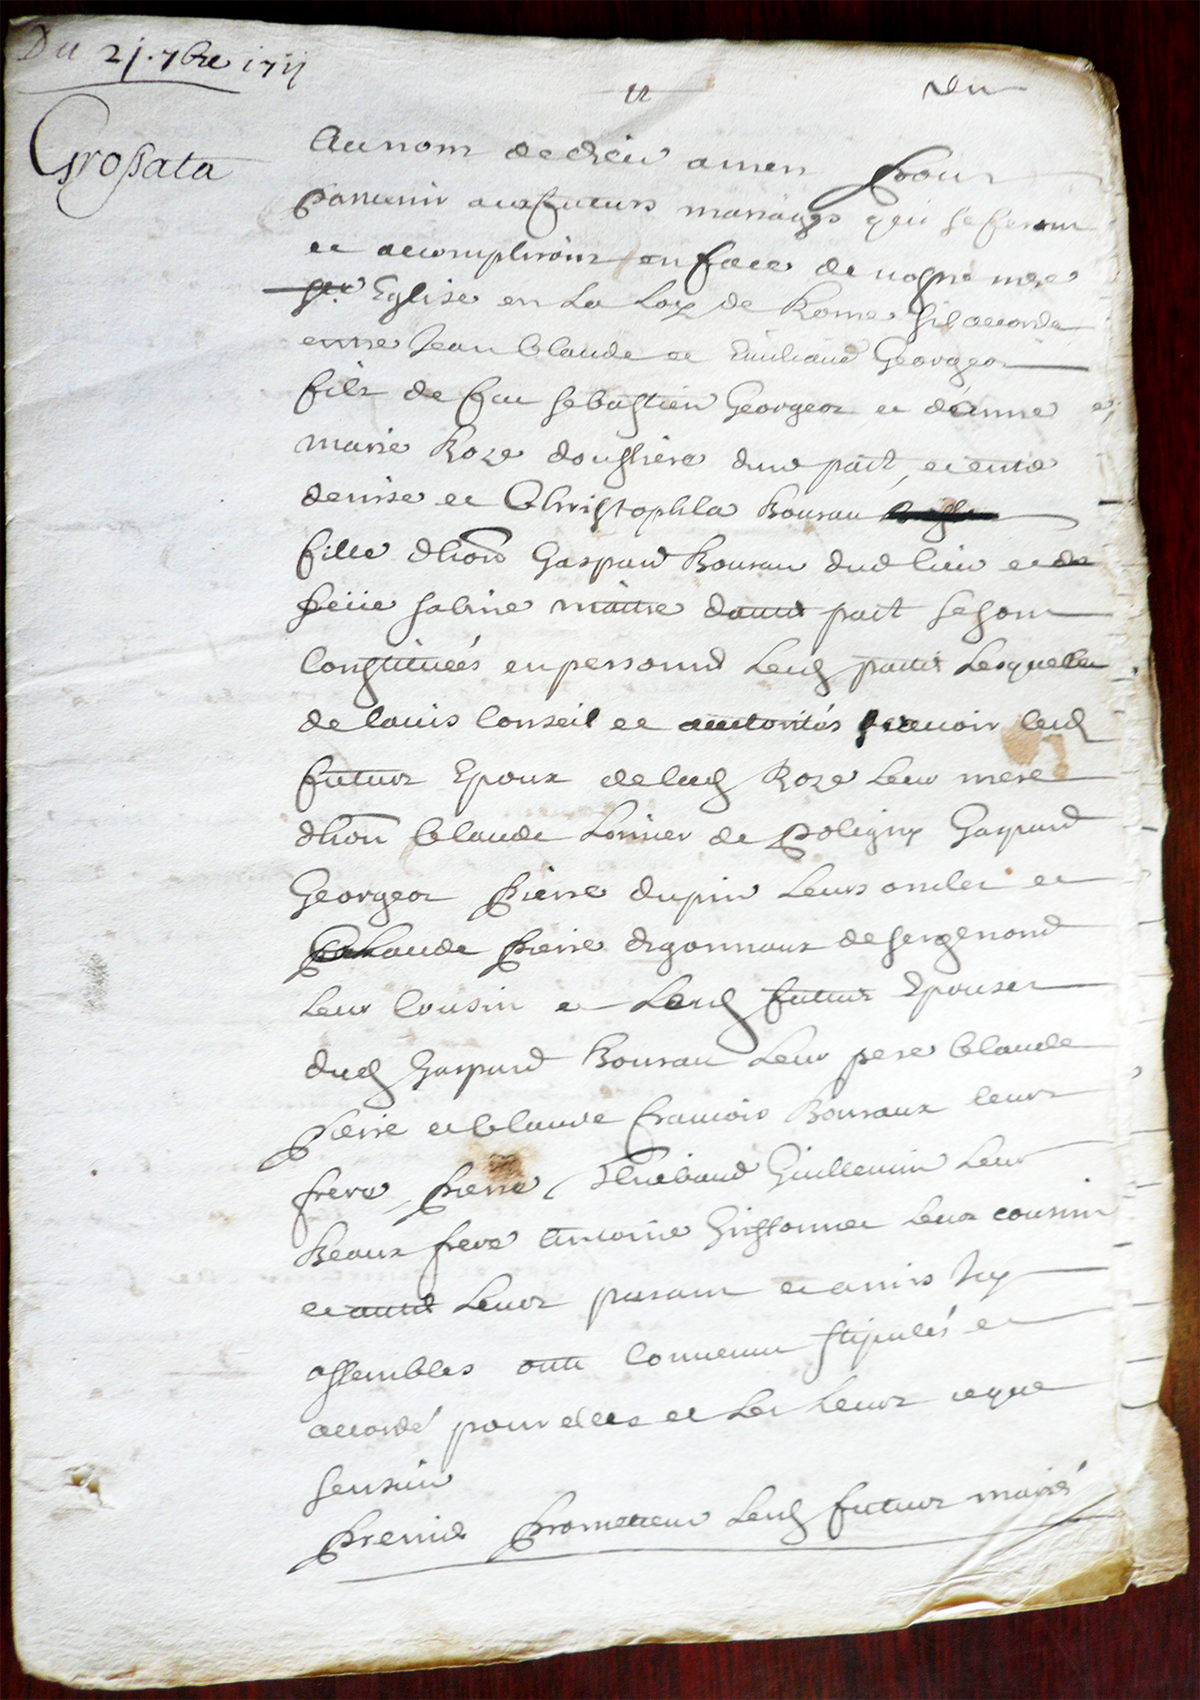 Du 21. 7bre 1711
Grossata
Au nom de dieu amen Pour
paruenir aux futurs mariages qui se feront
et accompliront en face de nostre mere
Ste Eglise en La Loy de Rome sil accorde
entre Jean Claude et Emiliand Georgeot
fils de feu Sebastien Georgeot et danne
marie Roze douhiere dune part, et entre
denise et Christophla Bouzau
fille dhon Gaspard Bouzau dud lieu et de
feüe Sabine maitre dautre part se sont
Constituées en personne Lesd parties Lesquelles
de lauis Conseil et autorités scauoir lesd
futurs Epoux de lad Roze Leur mere
dhon Claude Lonier de Poligny Gaspard
Georgeot Pierre dupin Leurs oncles et
Claude Pierre de Sergenond
Leur Cousin et Lesd futures Epouses
dud Gaspard Bouzau Leur pere Claude
Pierre et Claude francois Bouzaux leurs
frere Pierre Thiebaud Guillemin Leur
Beaux frere Antoine Leur cousin
et autres Leurs parans et amis Icy
assembles ont Conuenu stipulés et
accordé pour elles et Les Leurs ce que
sensuit
Premier Promettent Lesd futurs mariés